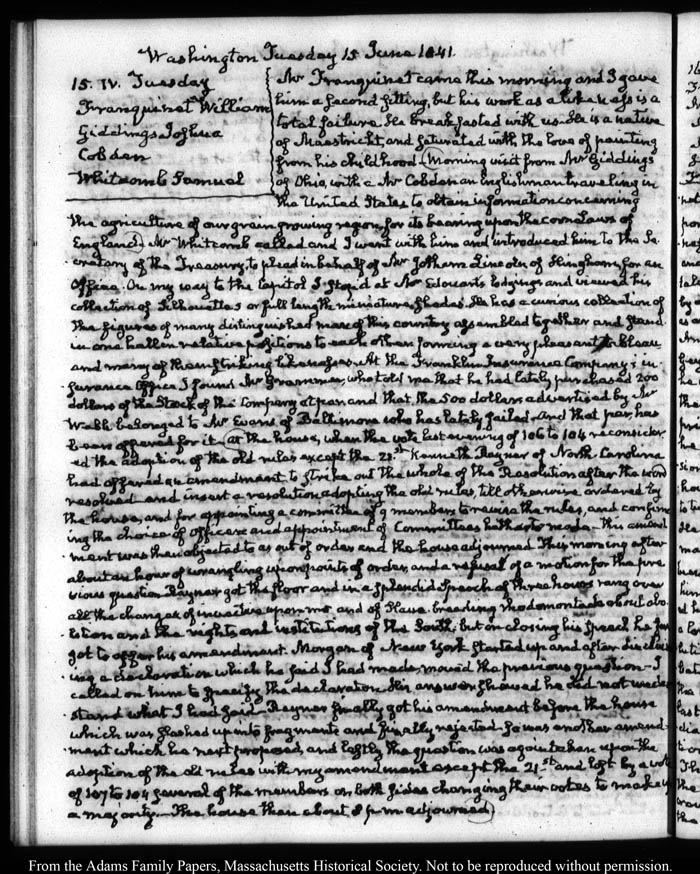 Washington Tuesday 15 June 1841.
15. IV. Tuesday
Franquinet William
Giddings Joshua
Cobden
Whitcomb Samuel
Mr Franquinet came this morning and I gave
him a second sitting, but his work as a likeness is a
total failure. He breakfasted with us. He is a native
of Maestricht, and saturated with the love of painting
from his childhood. Morning visit from Mr Giddings
of Ohio, with a Mr Cobden an Englishman traveling in
the United States to obtain information concerning
the agriculture of our grain growing region for its bearing upon the corn Laws of
England. Mr Whitcomb called and I went with him and introduced him to the Se-
cretary of the Treasury, to plead in behalf of Mr Jotham Lincoln of Hingham for an
Office. On my way to the Capitol I stop'd at Mr Edouart's lodgings and viewed his
collection of Silhouettes or full length miniature shades. He has a curious collection of
the figures of many distinguished men of this country assembled together and stand
in one hall in relative positions to each other forming a very pleasant tableau
and many of them striking likenesses. At the Franklin Insurance Company's in-
surance Office I found Mr who told me that he had lately purchased 200
dollars of the Stock of the Company at par, and that the 500 dollars advertised by Mr
Webb belonged to Mr Evans of Baltimore who has lately failed. And that par has
been offered for it. At the house, when the vote last evening of 106 to 104 reconsider-
ed the adoption of the old rules except the 21st Kenneth Rayner of North Carolina
had offered an amendment to strike out the whole of the Resolution after the word
resolved and insert a resolution adopting the old rules, till otherwise ordered by
the house, and for appointing a committee of 9 members to revise the rules, and confirm
ing the choice of officers and appointment of Committees hitherto made. This amend
ment was then objected to as out of order and the house adjourned. This morning after
about an hour of wrangling upon points of order, and a refusal of a motion for the pre
vious question Rayner got the floor and in a splendid Speech of three hours rang over
all the changes of invective upon me and of Slave-breeding rhodomontade about abo-
lition and the rights and institutions of the South, but on closing his speech he for
got to offer his amendment. Morgan of New York started up and after disclaim
ing a declaration which he said I had made moved the previous question. I
called on him to specify the declaration. His answer shewed he did not under
stand what I had said. Rayner finally got his amendment before the house
which was slashed up into fragments and finally rejected. So was another amend-
ment which he next proposed, and lastly the question was again taken upon the
adoption of the old rules with my amendment except the 21st and lost by a vote
of 107 to 104 several of the members on both sides changing their votes to make up
a majority. The house then about 8 p.m. adjourned.
From the Adams Family Papers, Massachusetts Historical Society. Not to be reproduced without permission.